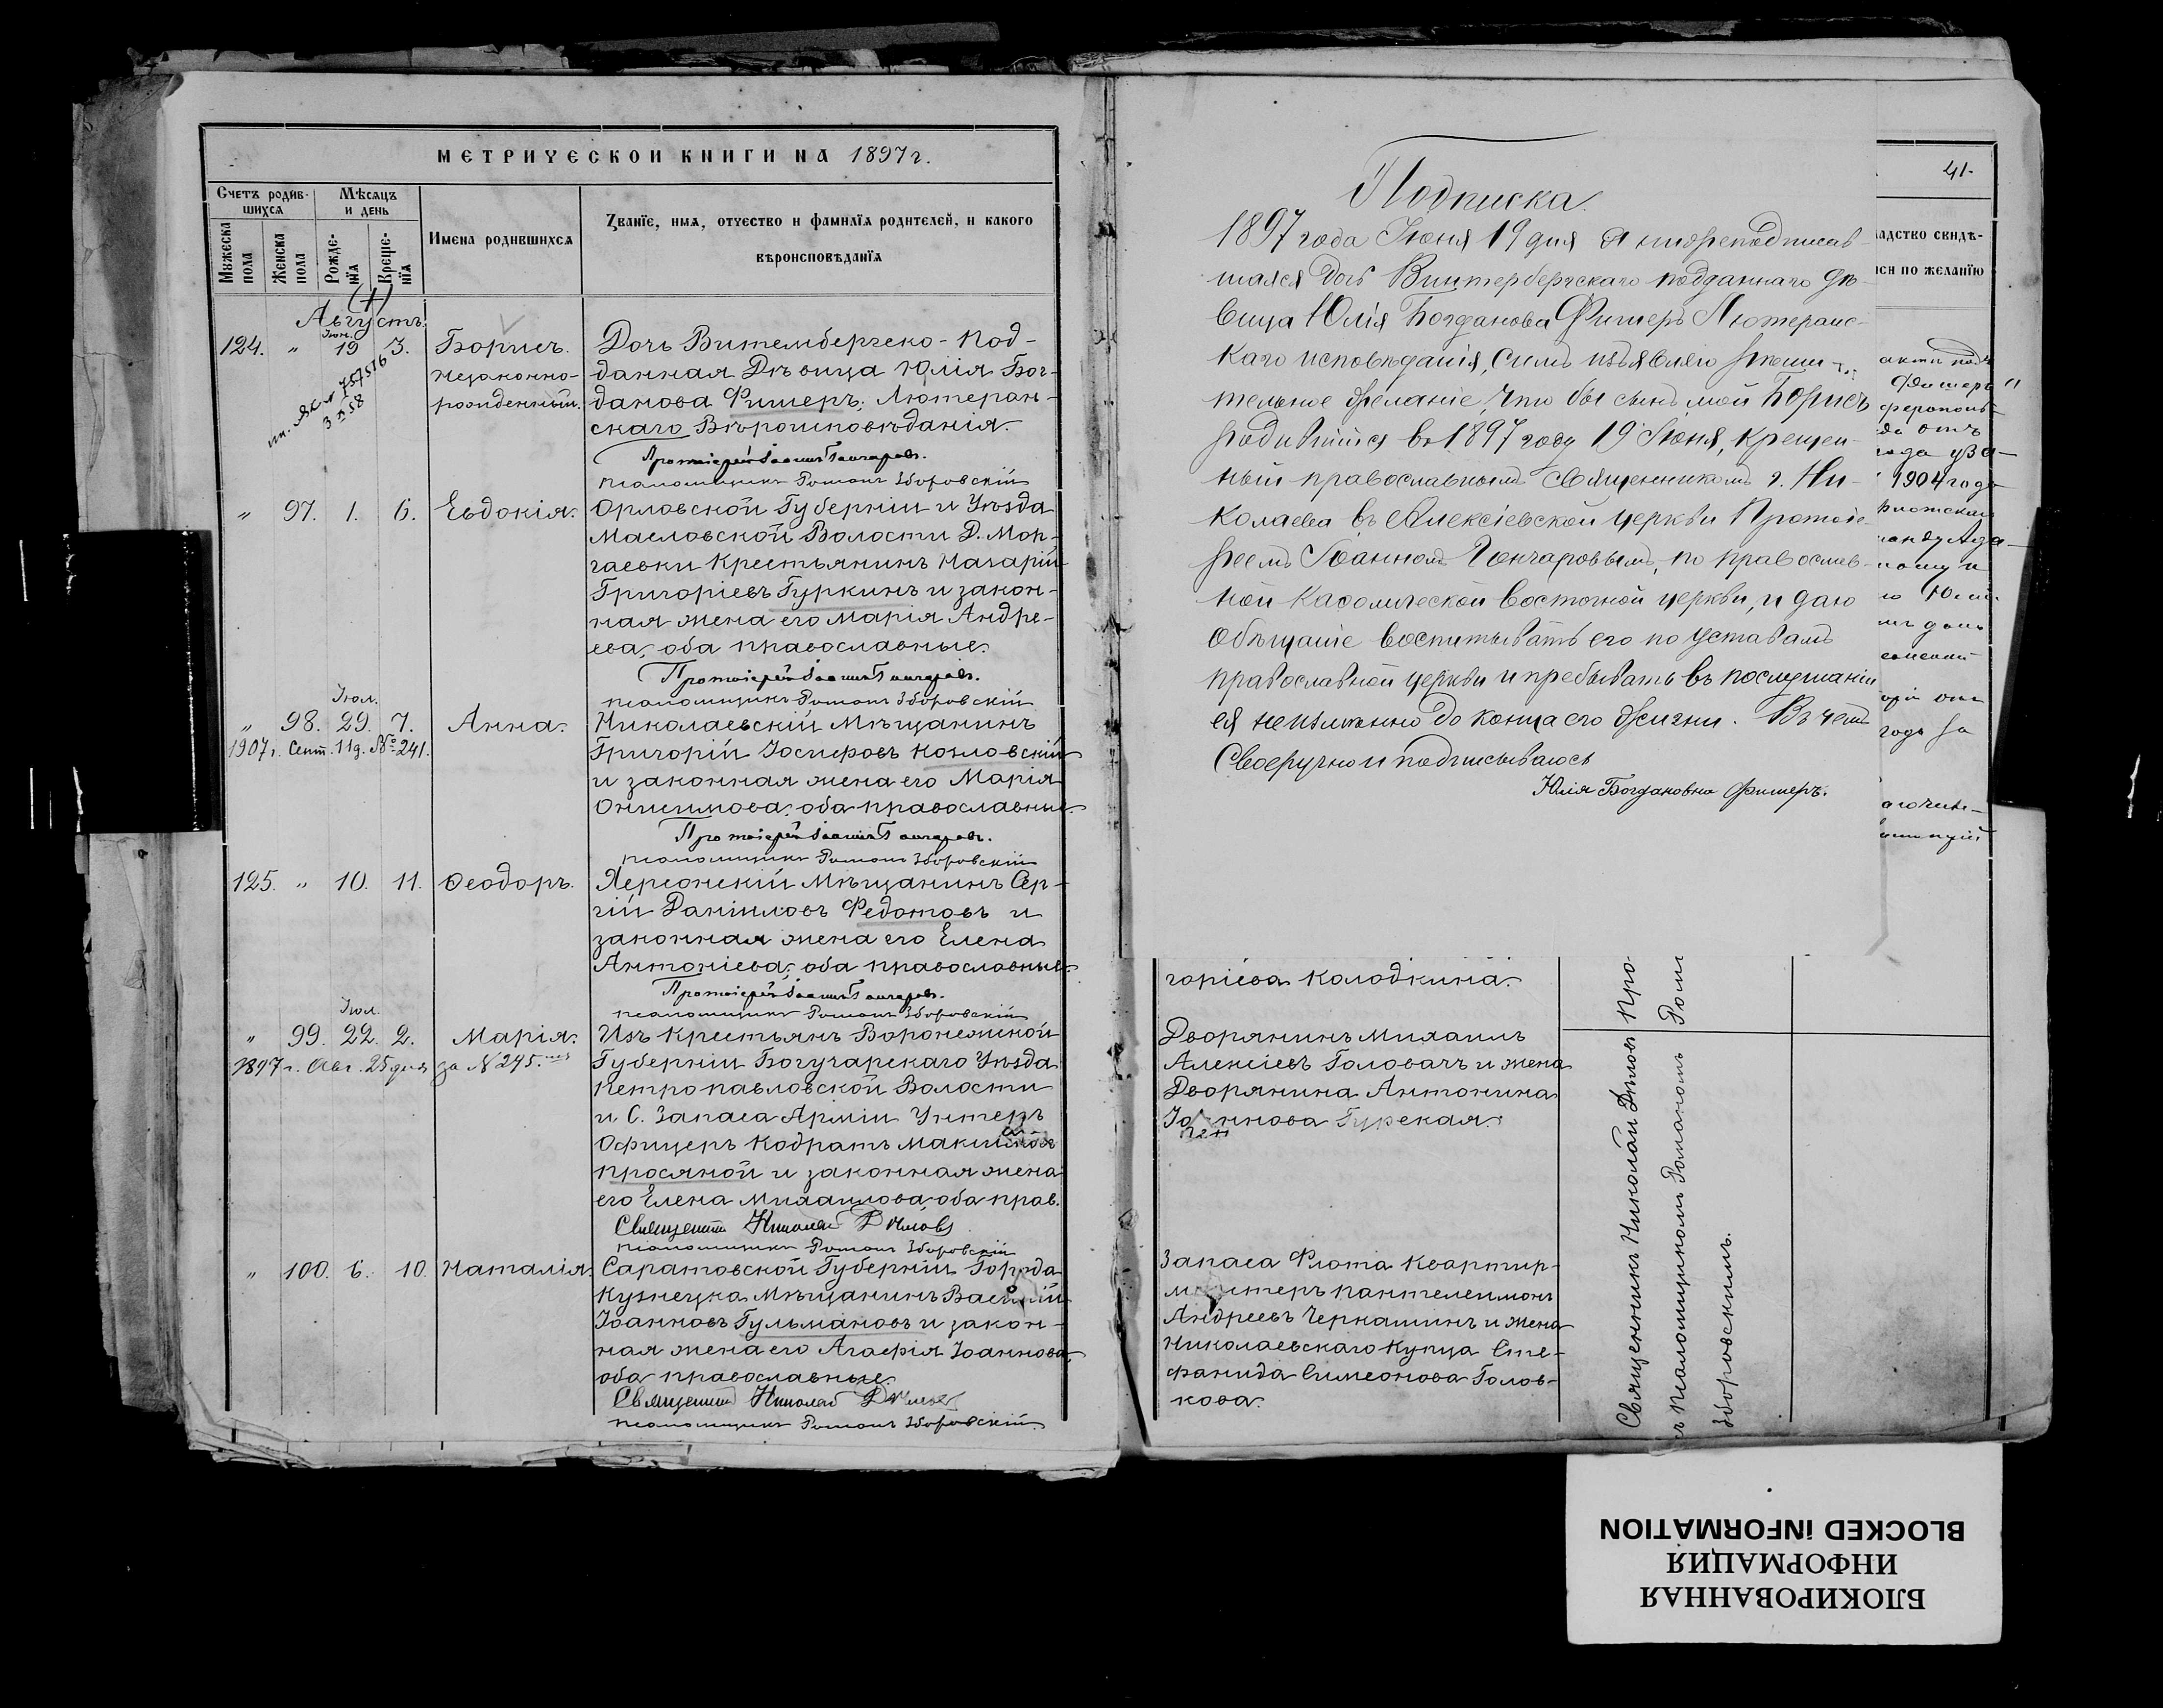 МЕТРИЧЕСКОЙ КНИГИ НА 1897 г.
Счетъ родив-
шихся
Мѣсяцъ
и день
Имена родившихся
Званїе, имя, отчество и фамилїа родителей, и какого
вѣроисповѣданїа
Мужеска
пола
Женска
пола
Рожде-
нїа
Креще-
нїа
Августъ.
Іюн.
124. " 19 3. Борисъ. Дочь Витембергско-Под-
незаконно- данная Дѣвица Юлія Бог-
рожденный. данова Фишеръ, Лютеран-
скаго Вѣроисповѣданія.
Протоіерей Іоаннъ Гончаровъ.
псаломщикъ Романъ Зборовскій
" 97. 1. 6. Евдокія. Орловской Губерніи и Уѣзда
Масловской Волости Д. Мор-
гаевки Крестьянинъ Назарій
Григоріевъ Гуркинъ и закон-
ная жена его Марія Андре-
ева, оба православные.
Протоіерей Іоаннъ Гончаровъ.
псаломщикъ Романъ Зборовскій
Іюл.
" 98. 29. 7. Анна. Николаевскій Мѣщанинъ
1907 г. Сент. 11 д. № 241. Григорій Іосифовъ Козловскій
и законная жена его Марія
Онисимова, оба православные.
Протоіерей Іоаннъ Гончаровъ.
псаломщикъ Романъ Зборовскій
125. " 10. 11. Ѳеодоръ. Херсонскій Мѣщанинъ Сер-
гій Даніиловъ Федотовъ и
законная жена его Елена
Антоніева, оба православные.
Протоіерей Іоаннъ Гончаровъ.
псаломщикъ Романъ Зборовскій
Іюл.
" 99. 22. 2. Марія. Изъ Крестьянъ Воронежской
1897 г. Авг. 25 дня за № 245. Губерніи Богучарскаго Уѣзда
Петропавловской Волости
и С. Запаса Арміи Унтеръ
Офицеръ Кодратъ
Просяной и законная жена
его Елена Михаилова, оба прав.
Священникъ Николай
псаломщикъ Романъ Зборовскій
" 100. 6. 10. Наталія. Саратовской Губерніи Города
Кузнецка Мѣщанинъ Василій
Іоанновъ Гульмановъ и закон-
ная жена его Агафія Іоаннова,
оба православные.
Священникъ Николай
псаломщикъ Романъ Зборовскій.
Подписка.
1897 года Іюня 19 дня я нижеподписав-
шаяся дочь Виттербергскаго подданнаго дѣ-
вица Юлія Богданова Фишеръ Лютеранс-
каго исповѣданія, симъ изъявляю рѣши-
тельное желаніе, что бы сынъ мой Борисъ
родившійся въ 1897 году 19 Іюня, крещен-
ный православнымъ священникомъ г. Ни-
колаева въ Алексіевской церкви Протоіе-
реемъ Іоанномъ Гончаровымъ, по православ-
ной каѳолической восточной церкви, и даю
обѣщаніе воспитывать его по уставамъ
православной церкви и пребывать въ послушаніи
ея неизмѣнно до конца его жизни. Въ чемъ
своеручно и подписываюсь
Юлія Богдановна Фишеръ.
41.
адство свидѣ-
иси по желанїю
1904 года
горіева Колодкина.
Дворянинъ Михаилъ
Алексіевъ Головачъ и жена
Дворянина Антонина
Гурская.
Запаса Флота Квартир-
мистеръ Пантелеимонъ
Андреевъ Черкашинъ и жена
Николаевскаго Купца Сте-
фанида Симеонова Голов-
кова.
Священникъ Николай
съ Псаломщикомъ Романомъ
Зборовскимъ.
БЛОКИРОВАННАЯ
ИНФОРМАЦИЯ
BLOCKED INFORMATION